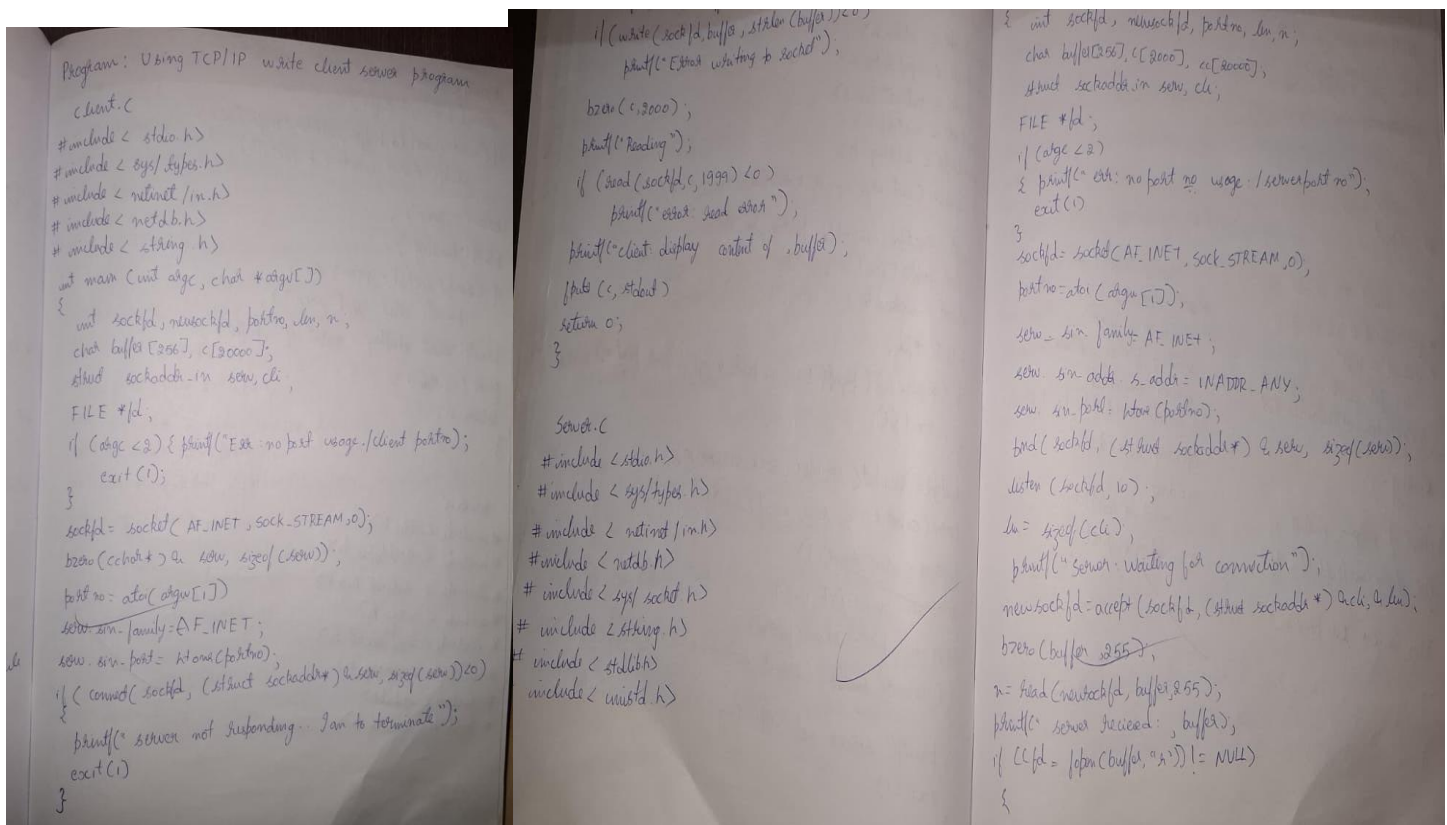 Program: Using TCP/IP write client server program
client.c
#include < stdio.h>
#include < sys/ types.h>
#include < netinet /in.h>
# include < netdb.h>
# include < string .h>
int main (int argc, char *argv[])
{
int sockfd, newsockfd, portno, len, n,
char buffer [256], c[20000];
struct sockaddr-in serv, cli;
FILE *fd;
if (argc <2) { printf("Err : no port usage./client portno);
exit (1);
}
sockfd = socket( AF_INET , SOCK_STREAM,0);
bzero((char*) & serv, sizeof(serv));
port no = atoi( argv[1])
serv.sin_family = AF_INET;
serv. sin_port = htons(portno);
if ( connect( sockfd, (struct sockaddr*) & serv, sizeof(serv))<0)
{
printf(" server not responding... I am to terminate");
exit(1)
}
if (write( sockfd, buffer, strlen (buffer))<0)
printf("Error writing to socket");
bzero( c, 2000) ;
printf("Reading");
if (read (sockfd, c, 1999) <0)
printf("error: read error"),
printf("client: display content of , buffer);
fputs (c, stdout)
return 0;
}
Server.C
#include <stdio.h>
#include < sys/types.h>
#include < netinet /in.h>
#include < netdb.h>
# include < sys/ socket .h>
# include < string.h>
# include < stdlib.h>
include < unistd .h>
{ int sockfd, newsockfd, portno, len, n;
char buffer[256], c[2000], cc[20000];
struct sockaddr_in serv, cli;
FILE *fd ;
if (argc <2)
{ printf(" err: no port no usage: / server port no");
exit (1)
}
sockfd = socket( AF_INET, SOCK_STREAM, 0);
port no = atoi (argv [1]);
serv_ sin family = AF_INET ;
serv. sin_addr. s_addr = INADDR_ANY;
serv. sin_port = htons (portno);
bind( sockfd, (struct sockaddr*) & serv, sizeof(serv));
listen (sockfd, 10) ;
len = sizeof (cli);
printf(" Server: waiting for connection");
newsockfd = accept (sockfd, (struct sockaddr *) &cli, & len);
bzero (buffer ,255);
n = read (newsockfd, buffer,255);
printf(" server recieced: , buffer);
if ((fd = fopen(buffer, "r")) != NULL)
{